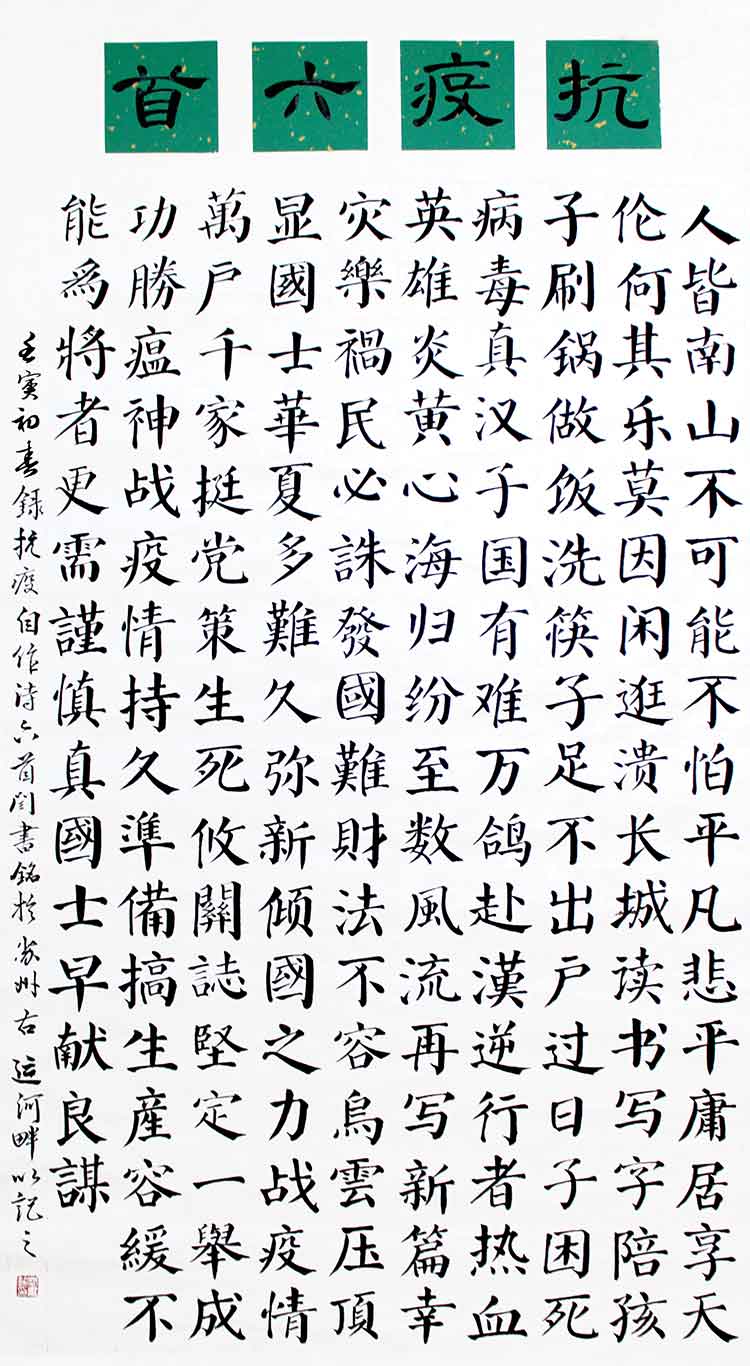 抗疫六首
人皆南山不可能不怕平凡悲平庸居享天
伦何其乐莫因闲逛溃长城读书写字陪孩
子刷锅做饭洗筷子足不出户过日子困死
病毒真汉子国有难万鸽赴漢逆行者热血
英雄炎黄心海归纷至数風流再写新篇幸
灾樂禍民必誅發國難財法不容烏雲压頂
显國士華夏多難久弥新倾國之力战疫情
萬户千家挺党策生死攸關誌堅定一舉成
功勝瘟神战疫情持久準備搞生産容緩不
能爲將者更需謹慎真國士早献良謀
壬寅初春録抗疫自作诗六首闫書銘於苏州古运河畔以記之